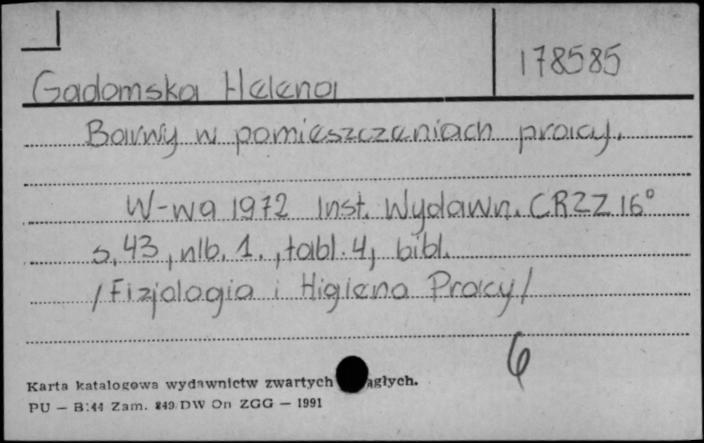 178585
Gadomska Helena
Barwy w pomieszczeniach pracy.
W-wa 1972 Inst. Wydawn. CRZZ 16°
s. 43, nlb. 1., tabl. 4, bibl.
/Fizjologia i Higiena Pracy/
6
Karta katalogowa wydawnictw zwartych
PU — B.44 Zam. 849 DW On ZGG — 1991